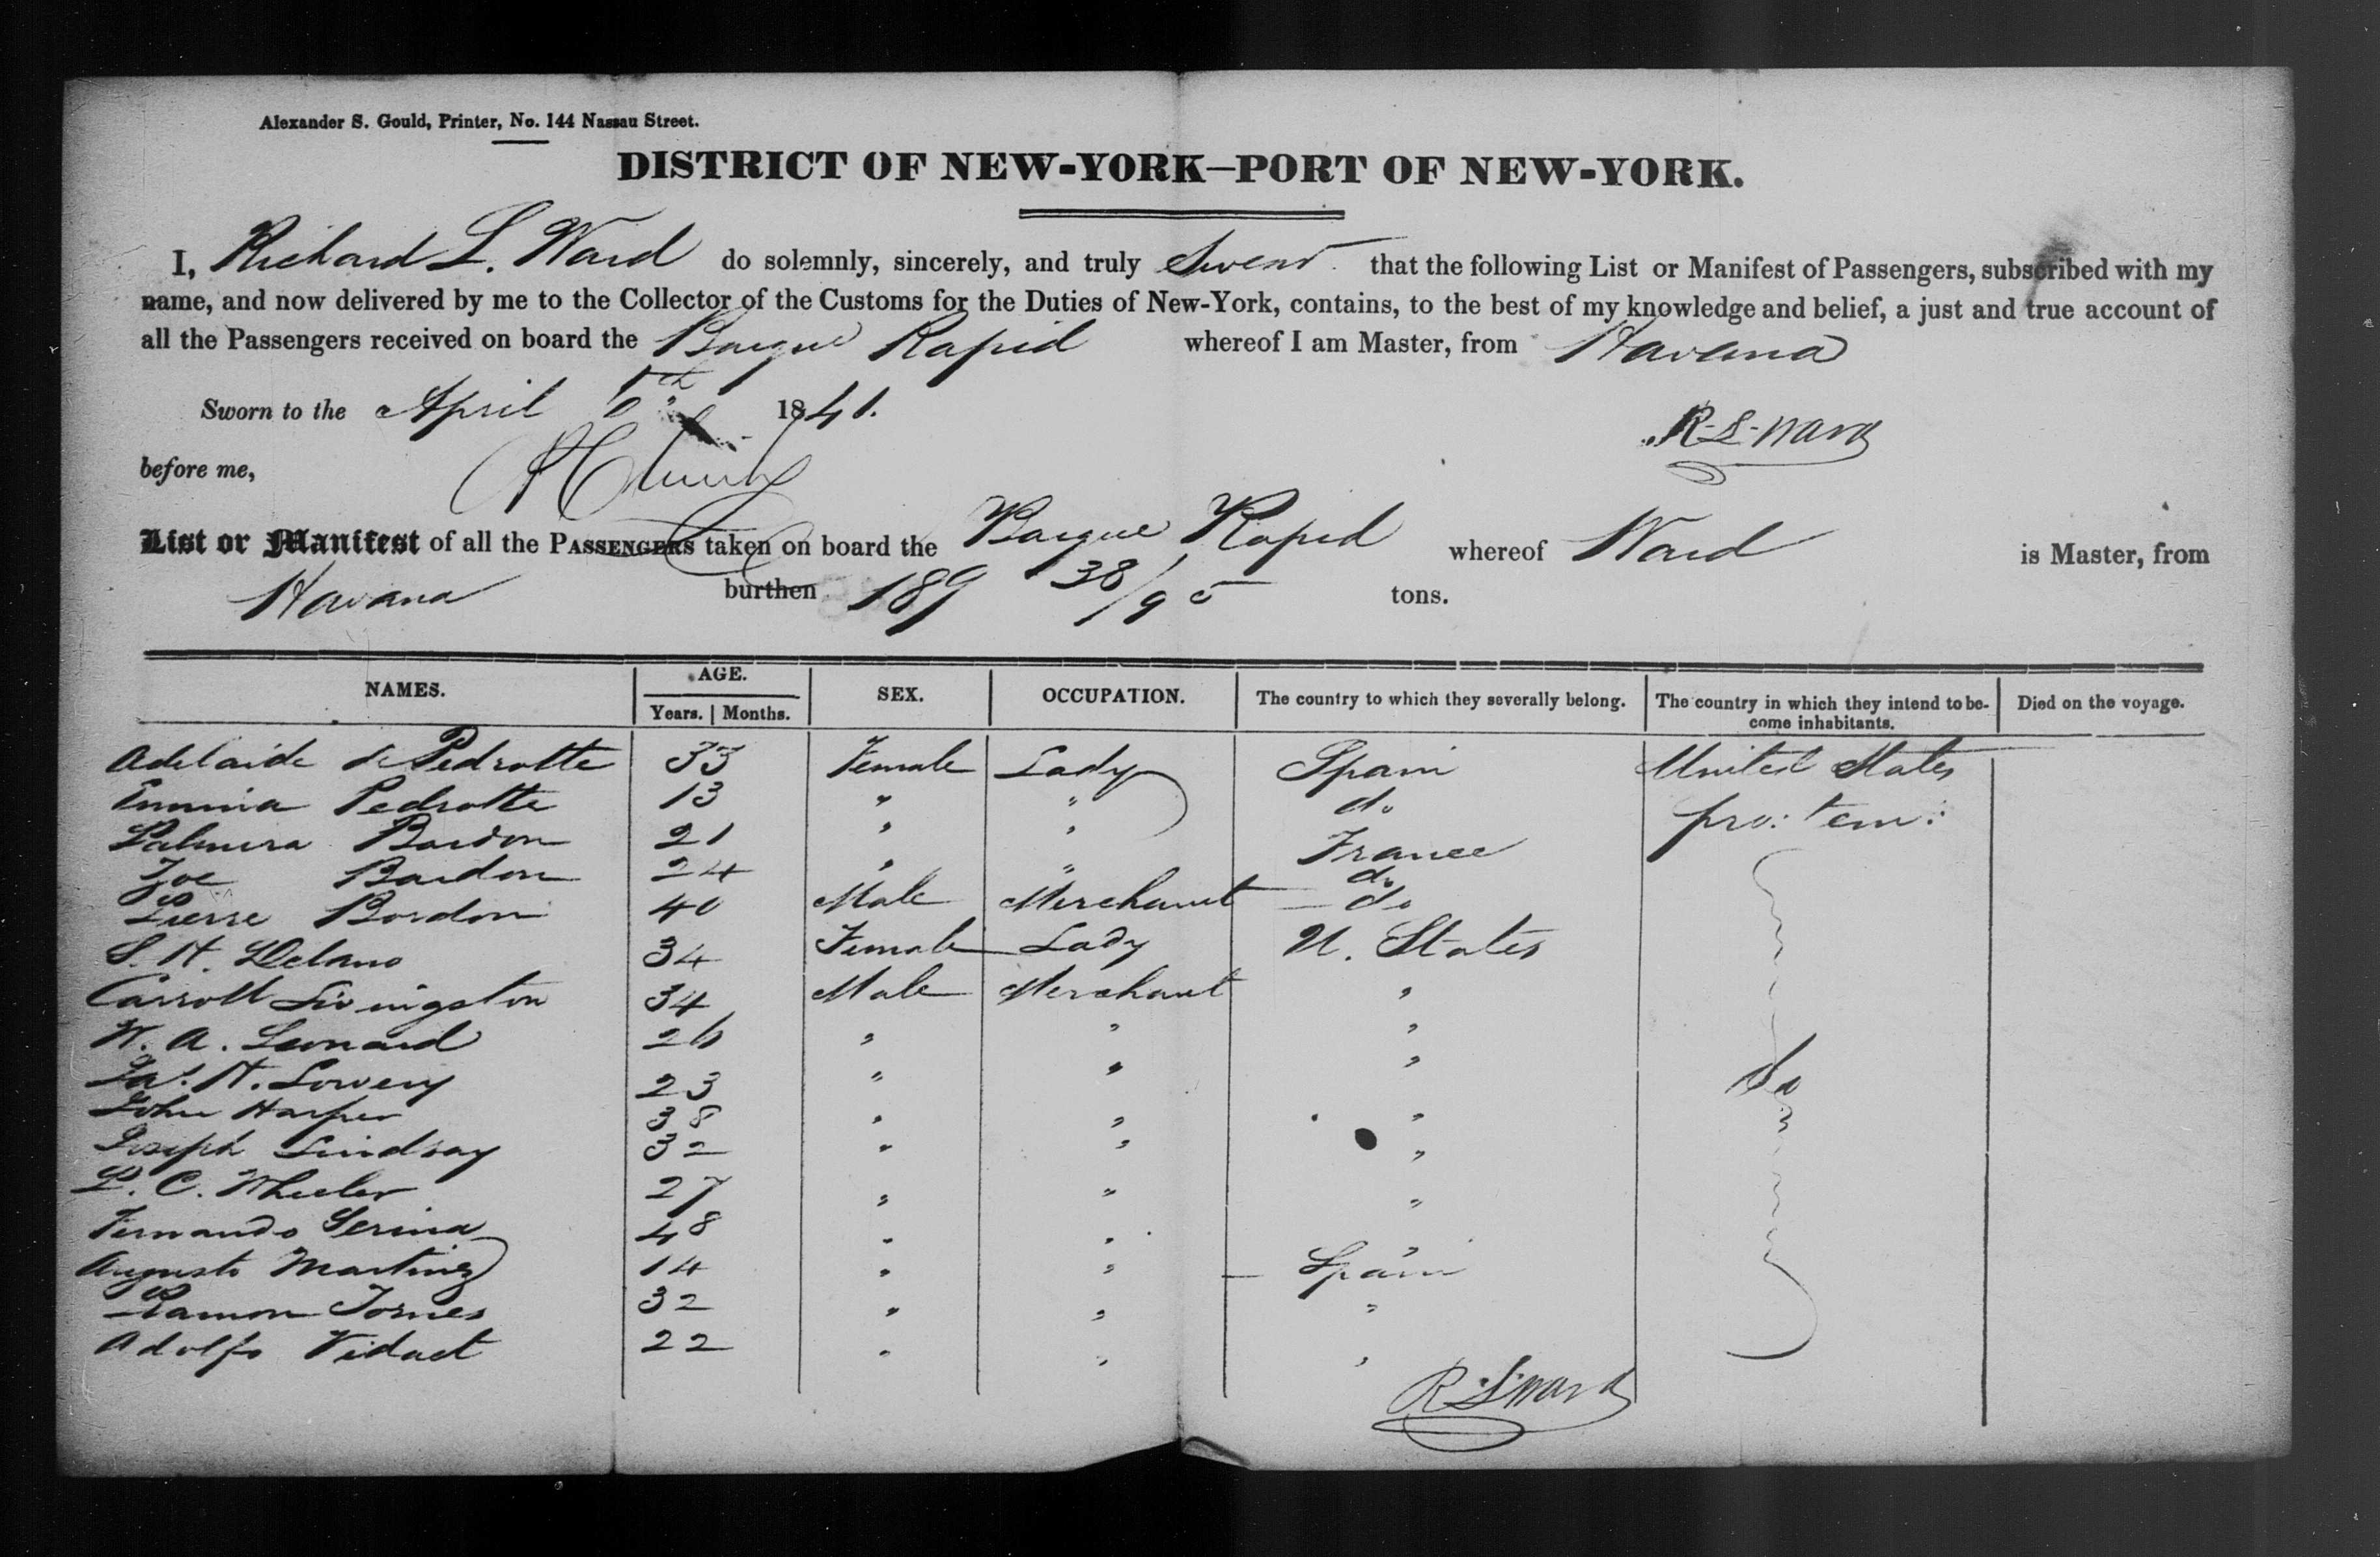 Alexander S. Gould, Printer, No. 144 Nassau Street.
DISTRICT OF NEW-YORK—PORT OF NEW-YORK.
I, Richard L. Ward do solemnly, sincerely, and truly Swear that the following List or Manifest of Passengers, subscribed with my
name, and now delivered by me to the Collector of the Customs for the Duties of New-York, contains, to the best of my knowledge and belief, a just and true account of
all the Passengers received on board the Barque Rapid whereof I am Master, from Havana
Sworn to the April 1841.
R. L. Ward
before me,
List or Manifest of all the PASSENGERS taken on board the Barque Rapid whereof Ward is Master, from
Havana burthen 189 38/95 tons.
NAMES. AGE. SEX. OCCUPATION. The country to which they severally belong. The country in which they intend to be- Died on the voyage.
Years. Months. come inhabitants.
Adelaide de Pedrotte 33 Female Lady Spain United States
Emma Pedrotte 13 " " do pro: tem:
Palmira Bardon 21 " " France
Zoe Bardon 24 " " do
Pierre Bordon 40 Male Merchant do
S. H. Delano 34 Female Lady U. States
Carroll Livingston 34 Male Merchant "
W. A. Leonard 26 " " "
Jas. H. Lowery 23 " " " do
John Harper 38 " " "
Joseph Lindsay 32 " " "
L. C. Wheeler 27 " " "
Fernando 48 " " "
Augusto Martinez 14 " " Spain
Ramon Torres 32 " " "
Adolfo Vidact 22 " " "
R. L. Ward